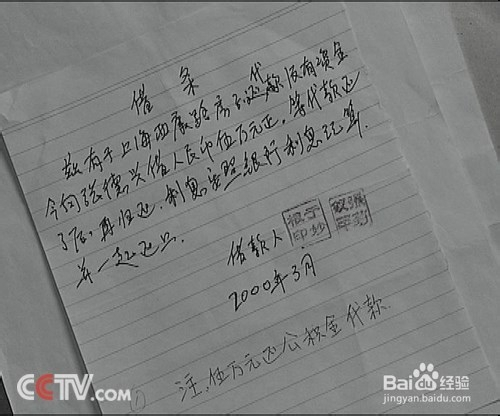 借条
代
有于上海西藏路房子还款没有资金
今向张德兴借人民币伍万元正。等代款还
了后,再归还.利息安照银行利息记算.
并一起还上.
借款人
2000年3月
注,伍万元还公积金代款.
CCTV.com
Baidu经验
jingyan.baidu.com